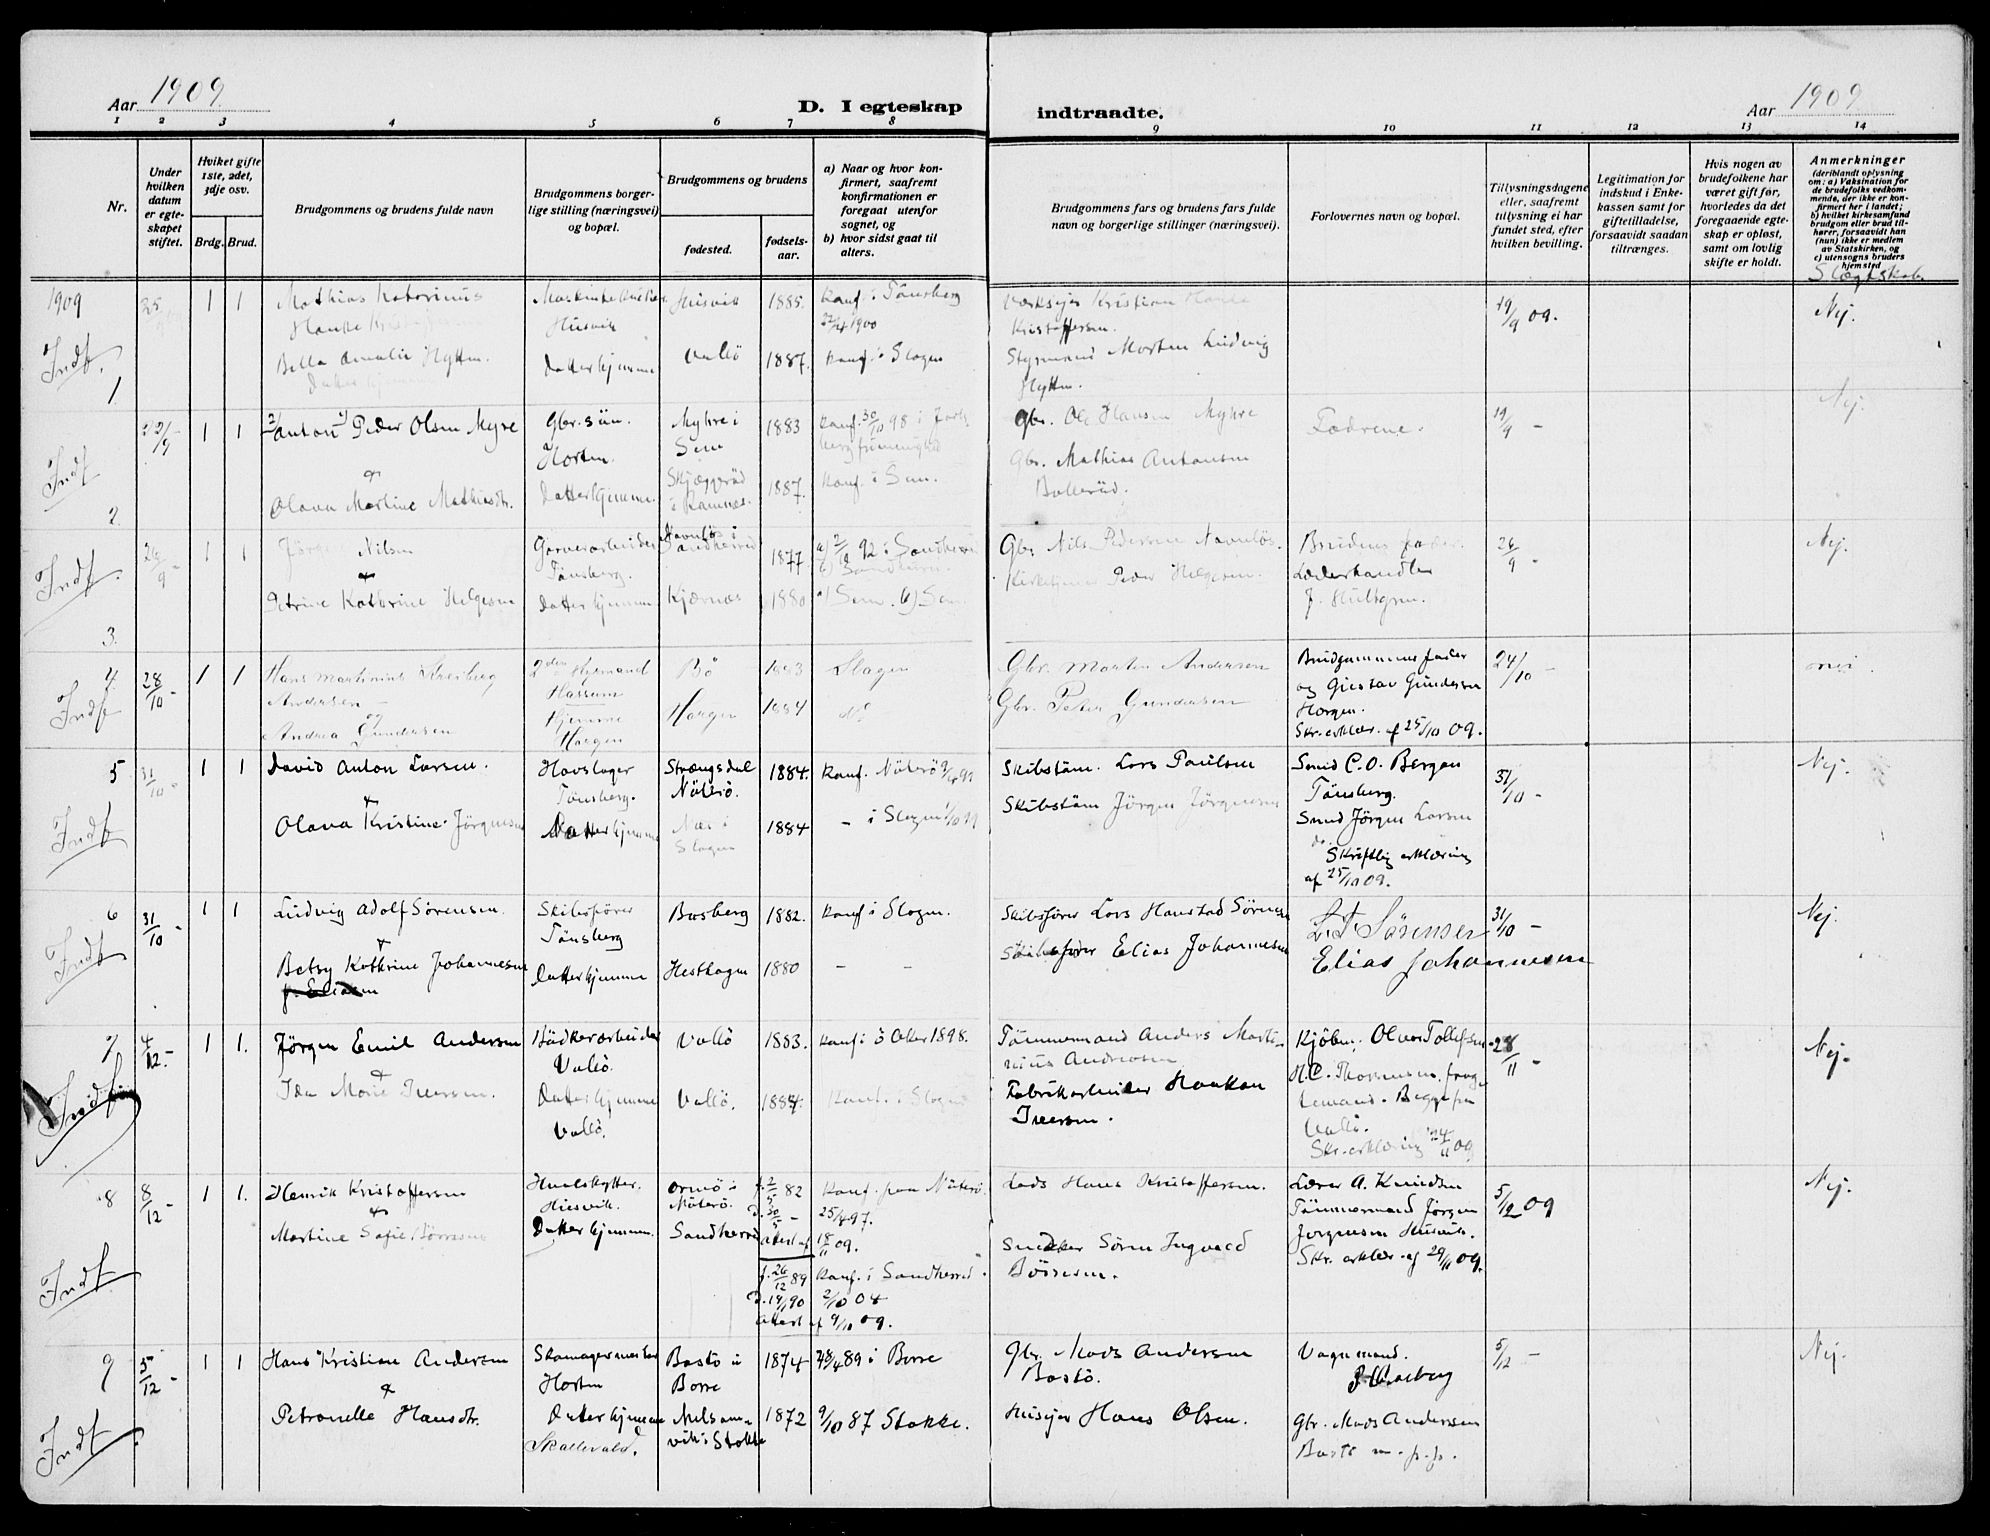 Aar 1909
D. I egteskap
indtraadte.
Aar 1909
1 2 3 4 5 6 7 8 9 10 11 12 13 14
Nr.
Under hvilken datum er egteskapet stiftet.
Hvilket gifte 1ste, 2det, 3dje osv.
Brdg. Brud.
Brudgommens og brudens fulde navn
Brudgommens borgerlige stilling (næringsvei) og bopæl.
Brudgommens og brudens
fødested.
fødselsaar.
a) Naar og hvor konfirmert, saafremt konfirmationen er foregaat utenfor sognet, og
b) hvor sidst gaat til alters.
Brudgommens fars og brudens fars fulde navn og borgerlige stillinger (næringsvei).
Forlovernes navn og bopæl.
Tillysningsdagene eller, saafremt tillysning ei har fundet sted, efter hvilken bevilling.
Legitimation for indskud i Enkekassen samt for giftetilladelse, forsaavidt saadan tiltrænges.
Hvis nogen av brudefolkene har været gift før, hvorledes da det foregaaende egteskap er opløst, samt om lovlig skifte er holdt.
Anmerkninger (deriblandt oplysning om: a) Vaksination for de brudefolks vedkommende, der ikke er konfirmert her i landet; b) hvilket kirkesamfund brudgom eller brud tilhører, forsaavidt han (hun) ikke er medlem av Statskirken, og c) utensogns bruders hjemsted
Slægtskab.
1909
Indf.
1
25
1 1
Mathias Katarinus
Hanke Kristoffersen
Bella Amalie Hytten.
Husvik
Datter hjemme
Husvik 1885.
Vallö 1887.
Konf. i Tönsberg
22/4 1900
Konf. i Slagen
Kristian Hanke
Kristoffersen.
Styrmand Morten Ludvig
Hytten.
19/9 09.
Nej.
Indf
2.
1 1
2/ Anton 1/ Peder Olsen Myre
&
Olava Martine Mathiasdtr.
Gbr. sön.
Horten.
Datter hjemme.
Myhre i
Sem
Skjæggerüd
i Ramnæs.
1883
1887.
Konf. 30/10 98 i
Konf. i Sem.
Gbr. Ole Hansen Myhre
Gbr. Mathias Antonsen
Bollerüd.
Fædrene.
19/9 -
Nej.
Indf.
3.
26/9 -
1 1
Nilsen
&
Petrine Kathrine Helgesen
Garverarbeider
Tönsberg.
Datter hjemme
Navnlös i
Sandherred
Kjærnæs
1877
1880
a) 2/10 92 i Sandherred
a) Sem. b) Sem.
Gbr. Nils Pedersen Navnlös.
Kirketjener Peder Helgesen.
Brudens fader.
Læderhandler
J. Hultgren.
26/9 -
Nej.
4.
Indf
28/10 -
1 1
Hans Martinius
Andersen
og
Andrea Gundersen
Hassum
Hjemme
Horgen
Bö
Horgen
1883
1884
Slagen
do
Gbr. Morten Andersen
Gbr. Peter Gundersen
Brudgommens fader
og Gustav Gundersen
Horgen.
Skr. erklær. af 25/10 09.
24/10 -
nei.
5
Indf
31/10 -
1 1
David Anton Larsen.
&
Olava Kristine Jörgensen
Havslager
Tönsberg.
Datter hjemme
Strængsdal
Nöterö.
Næs i
Slagen
1884.
1884
Konf. Nöterö
- i Slagen 1/10 99
Skibstöm. Lars Paulsen
Skibstöm Jörgen Jörgensen
Smed C. O. Bergan
Tönsberg.
Smed Jörgen Larsen
do.
Skriftlig erklæring
af 25/10 09.
31/10 -
Nej.
6
Indf
31/10 -
1 1
Ludvig Adolf Sörensen.
&
Betsy Kathrine Johannesen
Skibsförer
Tönsberg
Datter hjemme
Basberg
Hesthagen
1882.
1880
Konf i Slagen.
- -
Skibsförer Lars Hanstad Sörensen
Skibsförer Elias Johannesen
L. H Sörensen
Elias Johannesen
31/10 -
Nej.
7
Indf
4/12 -
1 1.
Jörgen Emil Andersen
&
Ida Marie Iversen.
Bödkerarbeider
Vallö.
Datter hjemme
Vallö.
Vallö
Vallö.
1883.
1884.
Konf i ö Aker 1898.
Konf. i Slagen
Tömmermand Anders Martinius Andreasen
Fabrikarbeider Haakon
Iversen.
Kjöbm. Oluer Tollefsen
H. C. Thoresen.
Begge fra
Vallö.
Skr. erklæring 24/11 09
28/11 -
Nej.
8
Indf
8/12 -
1 1.
Henrik Kristoffersen
&
Martine Sofie Börresen
Hvalskytter.
Husvik.
Datter hjemme.
Ormö i
Nöterö.
Sandherred
f. 2/5 82
d. 30/5 -
attest af 18/11 09.
f. 26/12 89
d. 19/1 90
Attest af 9/10 09.
Konf. paa Nöterö.
25/4 97.
Konf. i Sandherred.
2/10 04
Lods Hans Kristoffersen.
Snedker Sören Ingvald
Börresen.
Lærer A. Knudsen
Tömmermand Jörgen
Jörgensen Husvik.
Skr. erklær. af 29/11 09.
5/12 09
Nej.
9
Indf.
5/12 -
1 1
Hans Kristian Andersen
&
Petronelle Hansdtr.
Skomagermester
Horten
Datter hjemme
Skallevald.
Bastö i
Borre
Melsomvik i Stokke
1874
1872
28/4 89 i Borre
9/10 87 Stokke.
Gbr. Mads Andersen
Bastö.
Husejer Hans Olsen.
Vognmand.
Gbr. Mads Andersen
Bastö m. p. p.
5/12 -
Nej.